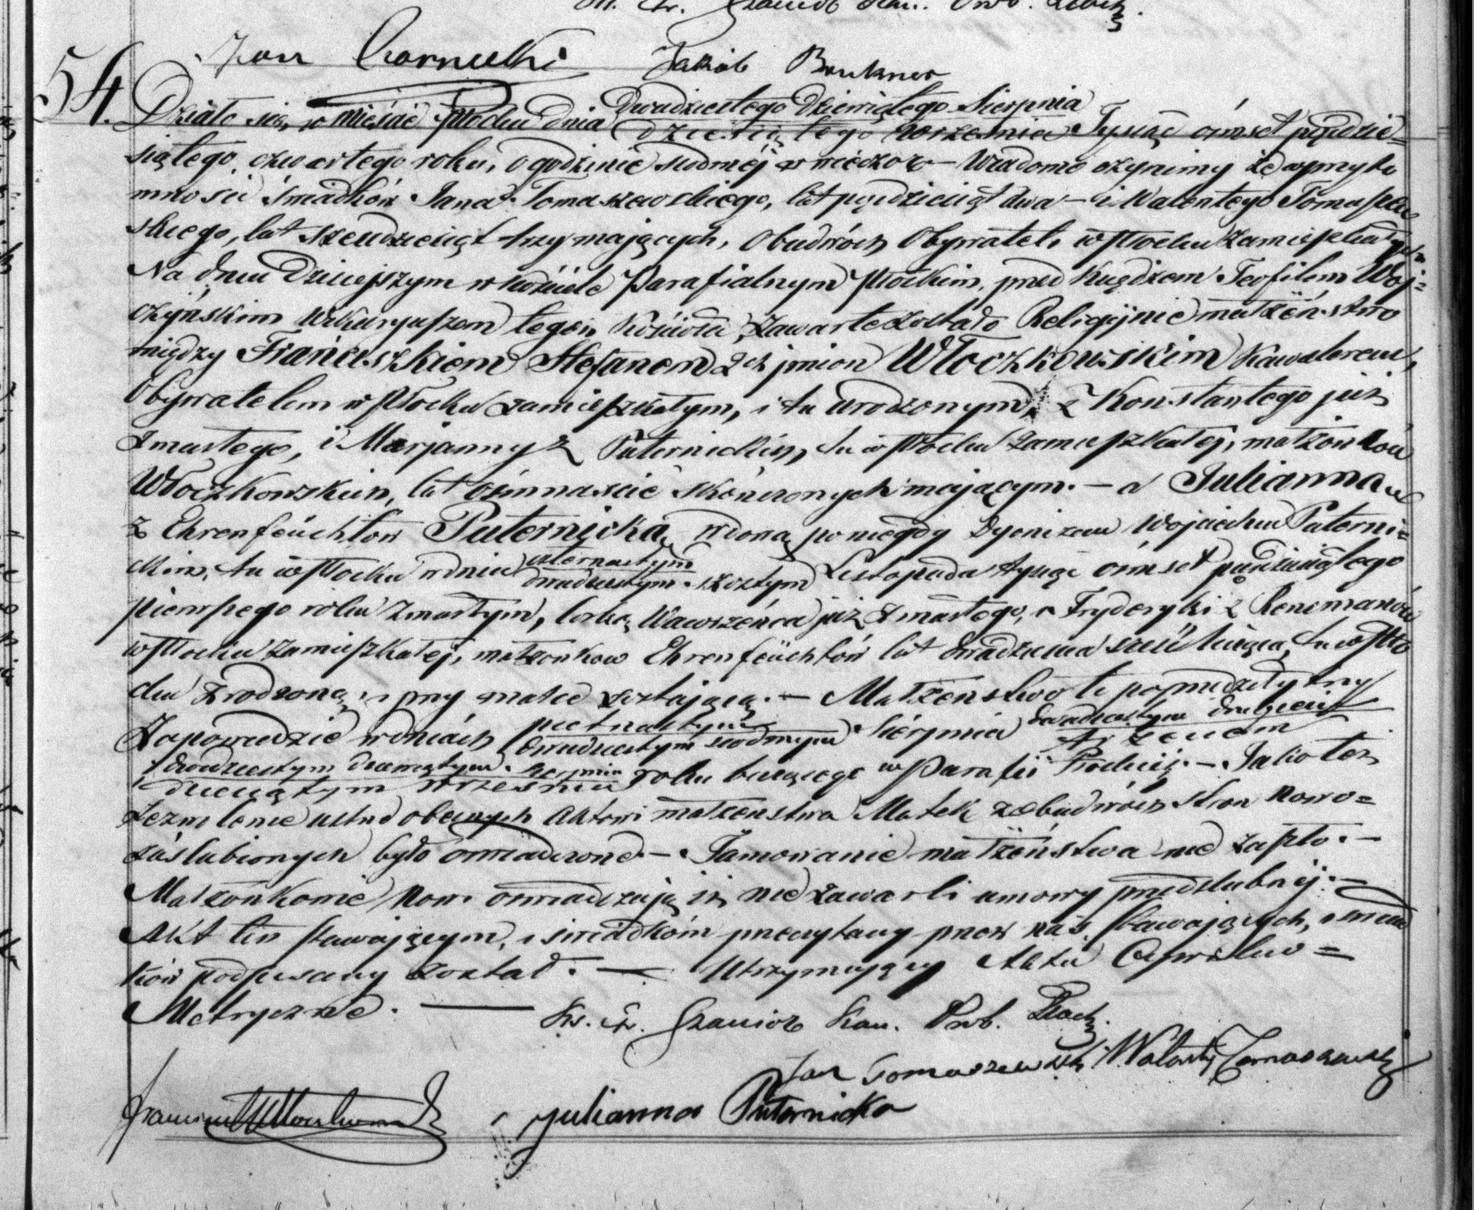 Jan Czarnecki Jakób Brukner
54.
Działo się w mieście Płocku dnia Dwudziestego Dziewiątego Sierpnia Tysiąc ośmset pięćdzie=
dziesiątego Września
siątego czwartego roku, o godzinie siódmej w wieczór — Wiadomo czynimy że w przyto
mności świadków Jana Tomaszewskiego, lat pięćdziesiąt dwa — i Walentego Tomaszew
skiego, lat trzy mających, obudwóch Obywateli w Płocku zamieszkałych.
Na dniu dzisiejszym w kościele Parafialnym Płockim, przed Księdzem Teofilem Woj=
czyńskim Wikaryuszem tegoż kościoła, zawarte zostało Religijnie małżeństwo
między Franciszkiem Stefanem 2ch imion Włoczkowskim kawalerem,
Obywatelem w Płocku zamieszkałym, i tu urodzonym, z Konstantego już
zmarłego, i Marjanny z Puternickich, tu w Płocku zamieszkałej, małżonków
Włoczkowskich, lat ośmnaście skończonych mającym. — a Julianną
z Ehrenfeüchtów Puternicką, wdową po niegdy Wojciechu Puterni=
ckim, tu w Płocku w dniu czternastym Listopada tysiąc ośmset pięćdziesiątego
dwudziestym szóstym
pierwszego roku zmarłym, córką Wawrzeńca już zmarłego, i Fryderyki z
w Płocku zamieszkałej, małżonków Ehrenfeüchtów lat dwadzieścia sześć liczącą, tu w Pło
cku zrodzoną i przy matce zostającą. — Małżeństwo te poprzedziły trzy
Zapowiedzie w dniach piętnastym Sierpnia dwudziestym
dwudziestym siódmym trzecim
i dwudziestym dziewiątym Sierpnia roku bieżącego w Parafii Płockiej. — Jako też
dziesiątym Września
zezwolenie ustne obecnych aktowi małżeństwa Matek z obudwóch stron Nowo=
zaślubionych było oświadczone — Tamowanie małżeństwa nie zaszło. —
Małżonkowie Nowi oświadczają iż nie zawarli umowy przedślubnéj. —
Akt ten stawającym, i świadkom przeczytany przez nas stawających, i świad
ków podpisany został. — Utrzymujący Akta Cywilno =
Metryczne. — Ks. Gzaniob Kan. Prob. Płocki
Jan Tomaszewski Walenty Tomaszewski
Julianna Puternicka